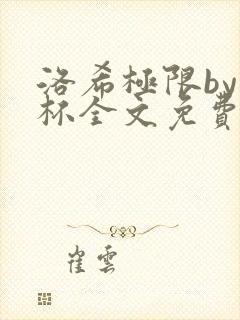 洛希極限by
杯全文免費
崔雲